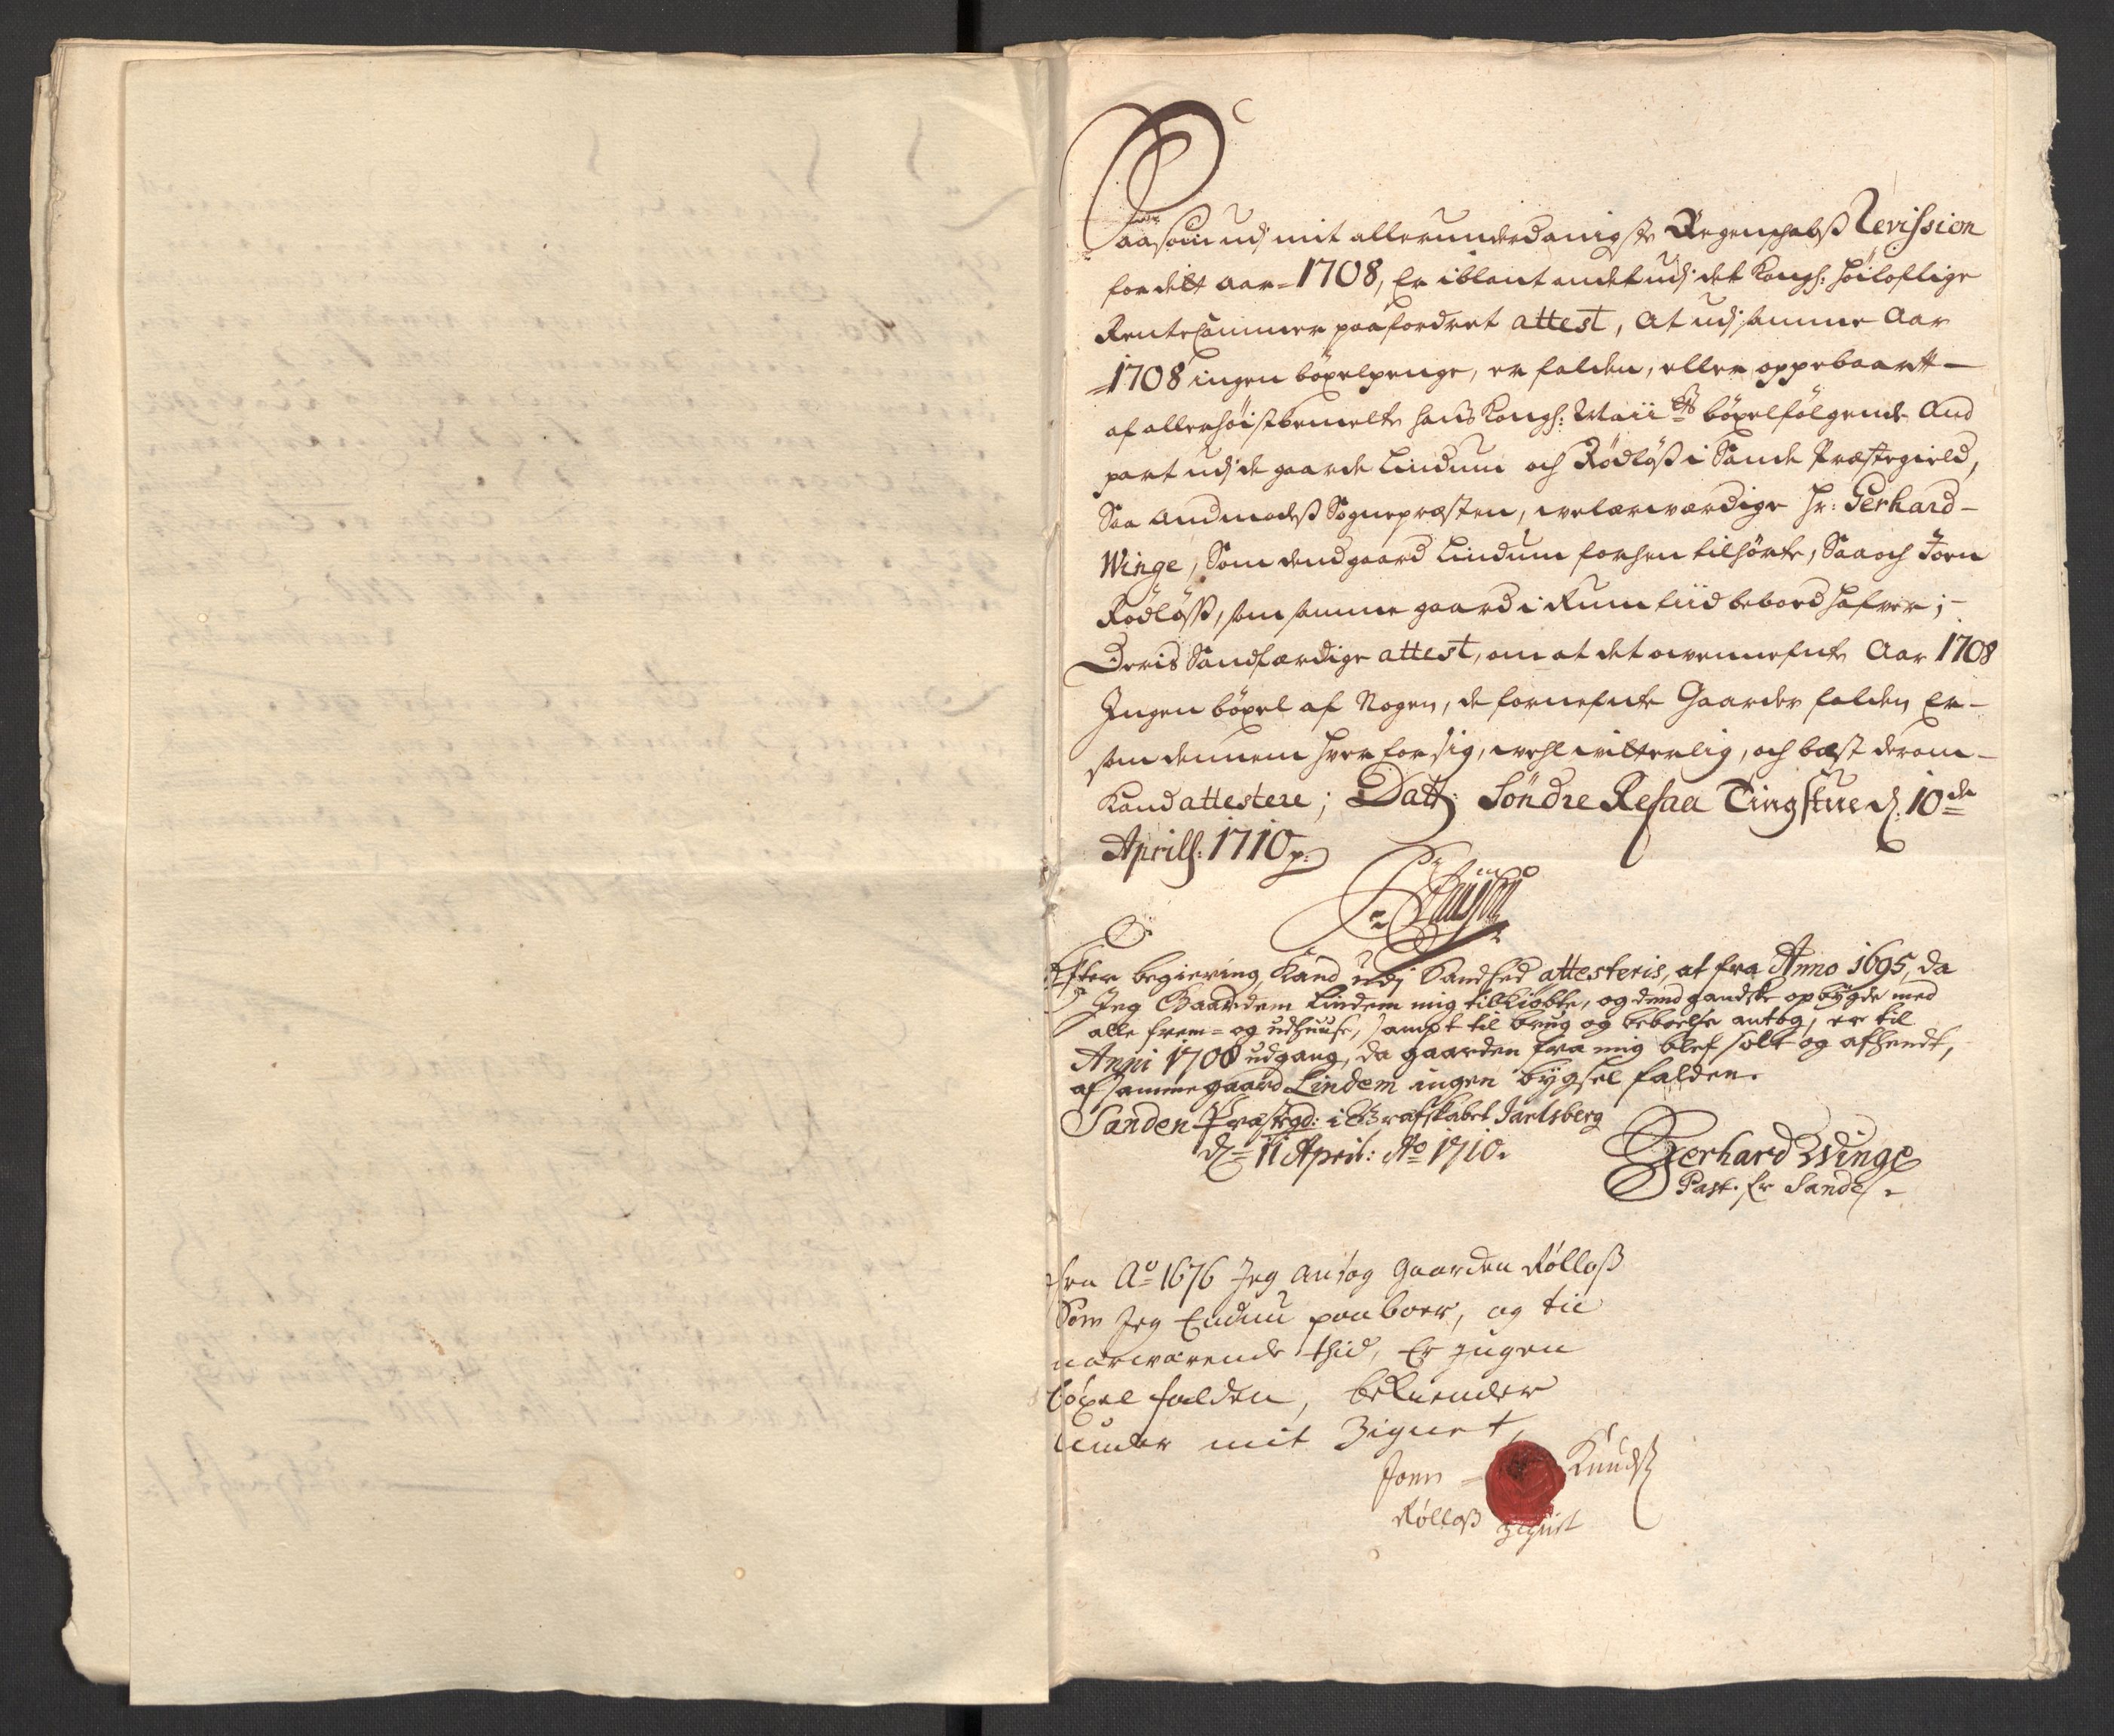 Saasom udj mit allerunderdanigste Regenschabs Revission
for ditt aar = 1708, Er iblant andet udj det Kongl: höiloflige
RenteCammer paafordret attest, At udj samme Aar
=1708 ingen böxelpenge, er falden, eller oppebaartt
af allerhöistbemelte hans Kongl: Maii<sup>tts</sup> böxelfölgende And
part udj de gaarde Lindum och Rödløs i Sande Præstegield,
Saa andmodes Sognepræsten, welærwærdige Hr: Gerhard
Winge, Som dend gaard Lindum forhen tilhörte, Saa och Joen
Rödløss, som samme gaard i Rum tiid beboed hafver;
Deris Sandfærdige attest, om at det ovennefnte Aar 1708
Ingen böxel af Nogen, de fornefnte Gaarder falden Er
som dennem hver for sig, wehl witterlig, och best derom
Kand attestere; Datt: Söndre Refsaa Tingstue d: 10<sup>de</sup>
Aprill: 1710 p:
Efter begiering Kand udj Sandhed attesteris, at fra Anno 1695, da
Jeg Gaardem Lindem mig tilkiøbte, og dend gandske opbygde med
alle frem= og udhuuse, sampt til brug og beboelse antog, er til
Anni 1708 udgang, da gaarden fra mig blef solt og afhendt,
af samme gaard Lindem ingen bygsel falden.
Sanden Præstegd: i Grafskabet Jarlsberg
d= 11 April: Ao 1710.
Gerhard Winge
Past: Sande
fra Ao 1676 Jeg antog Gaarden Rølloss
Som Jeg Endnu paaboer, og til
nærværende thid, Er Ingen
böxel falden, bekiender
under mit Zignet,
Joen Knuds
Rølloss Zignet